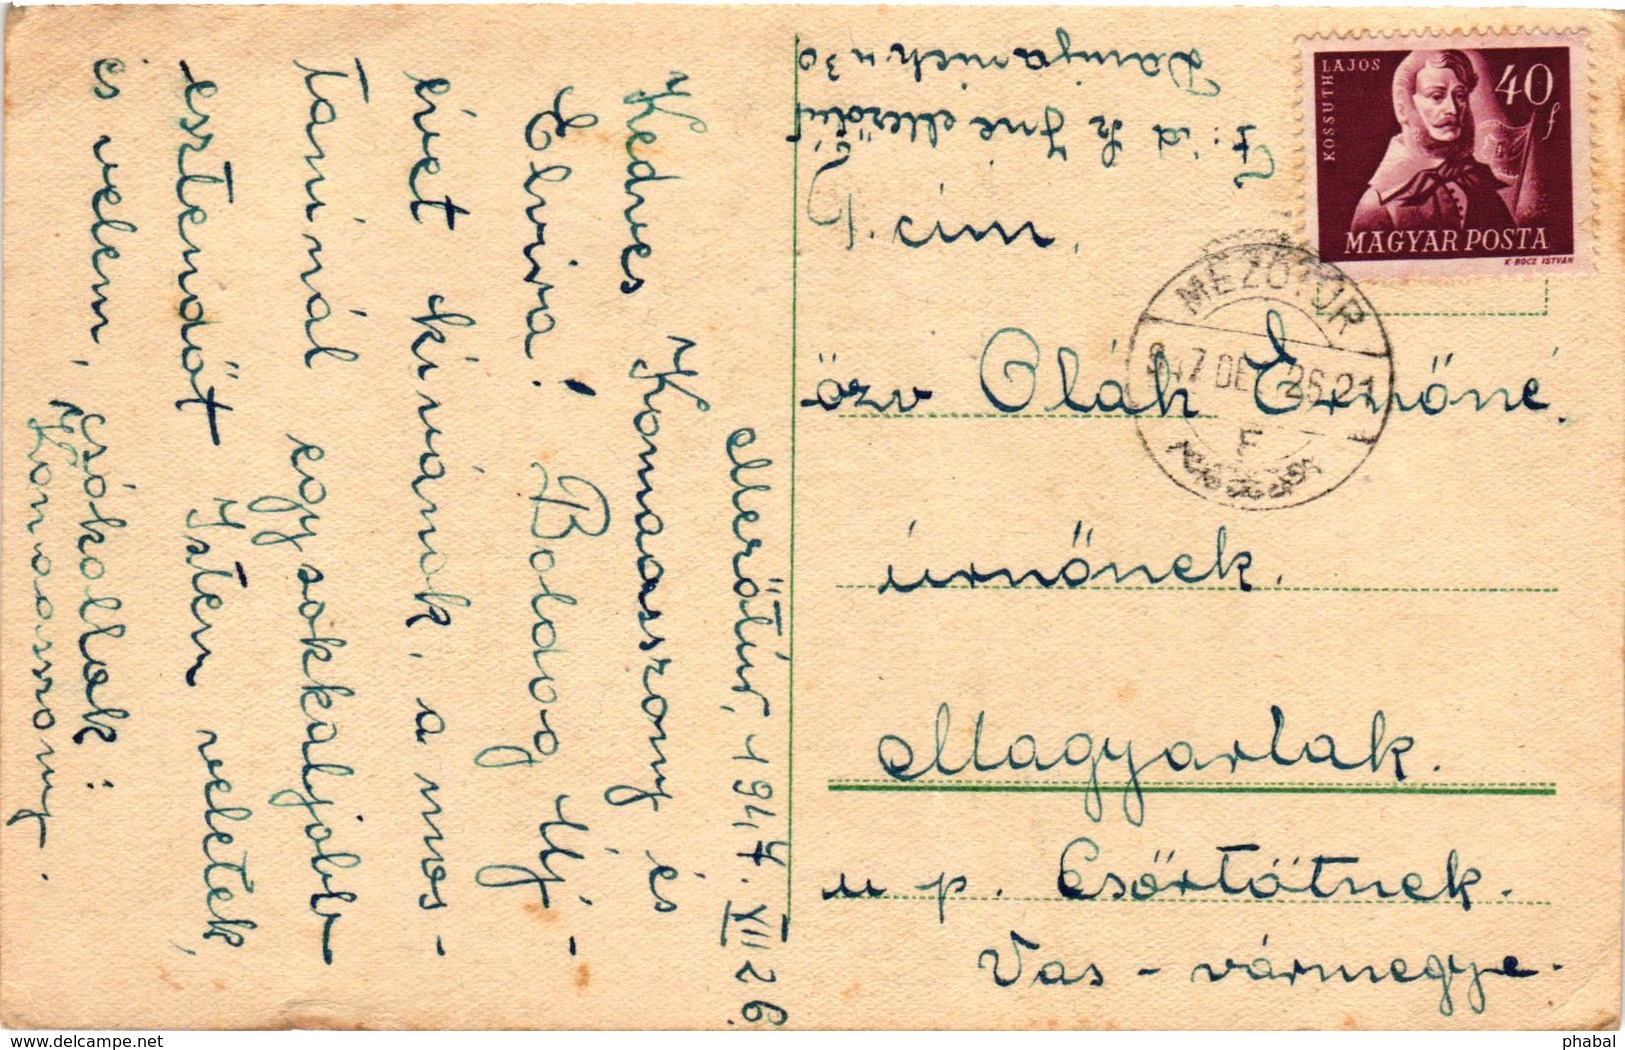 Mezőtúr, 1947. XII 26.
Kedves Komaasszony és
Elvira! Boldog Uj-
évet kívánok, a mos-
taninál egy sokkaljobb
esztendőt Isten veletek,
és velem, csókollak:
Komaasszony.
cím
özv Oláh Ernőné.
úrnőnek.
Magyarlak.
u p. Csörtötnek.
Vas-vármegye.
KOSSUTH LAJOS
40 f
MAGYAR POSTA
K·BOCZ ISTVÁN
MEZŐTÚR
947 DE 26.21
F
delcampe.net
phabal